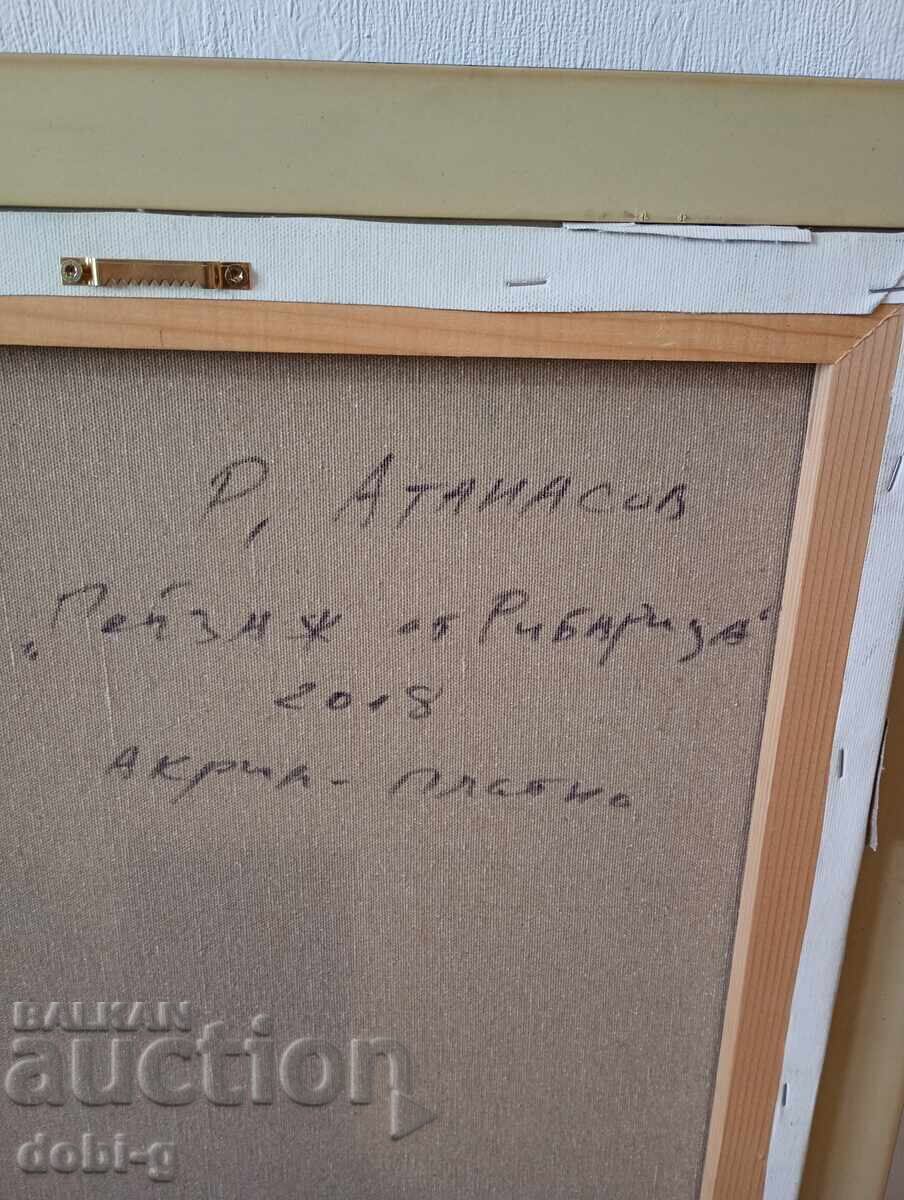 Р, Атанасов
„Пейзаж от Рибарица"
2018
Акрил - платно
BALKAN
auction
dobi-g